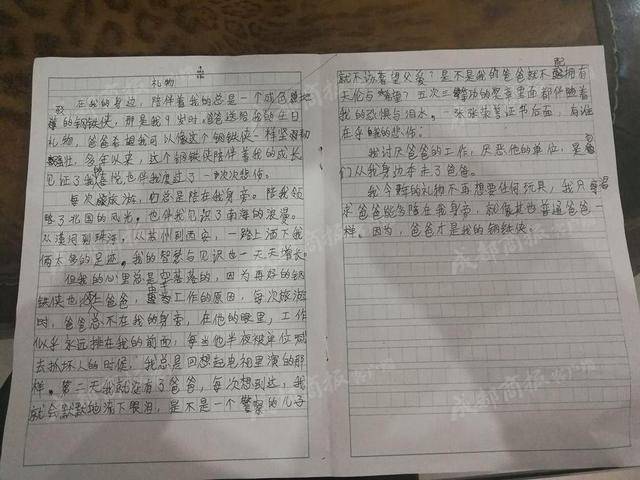 礼物
在我的身边，陪伴着我的总是一个成色
的钢铁侠，那是我十岁时，爸爸送给我的生日
礼物，爸爸希望我可以像这个钢铁侠一样坚
强，多年以来，这个钢铁侠陪伴着我的成长
见证了我喜悦，也伴我度过了一次次悲伤。
每次旅游，它总是陪在我身旁。陪我领
略了北国的风光，也伴我见识了南海的浪漫。
从洛阳到珠海，从苏州到西安，一路上洒下我
俩太多的足迹，我的智慧与见识也一天天增长。
但我的心里总是空荡荡的，因为再好的钢
铁侠也 爸爸，因为工作的原因，每次旅游
时，爸爸总不在我的身旁，在他的眼里，工作
似乎永远排在我的前面，每当他半夜被单位喊
去抓坏人的时候，我总是回想起电视里演的那
样。第二天我就没有了爸爸，每次想到这，我
就会默默地流下眼泪，是不是一个警察的儿子
就不 奢望父爱？是不是我的爸爸就不配拥有
天伦与 ？五次三等功的荣誉里面都伴随着
我的恐惧与泪水。一张张荣誉证书后面，有谁
在乎 的悲伤。
我讨厌爸爸的工作，厌恶他的单位，是
们从我身边夺走了爸爸。
我今年的礼物不再想要任何玩具，我只
求爸爸能多陪在我身旁，就像其他普通爸爸一
样。因为，爸爸才是我的钢铁侠。
成都商报客户端
成都商报客户端